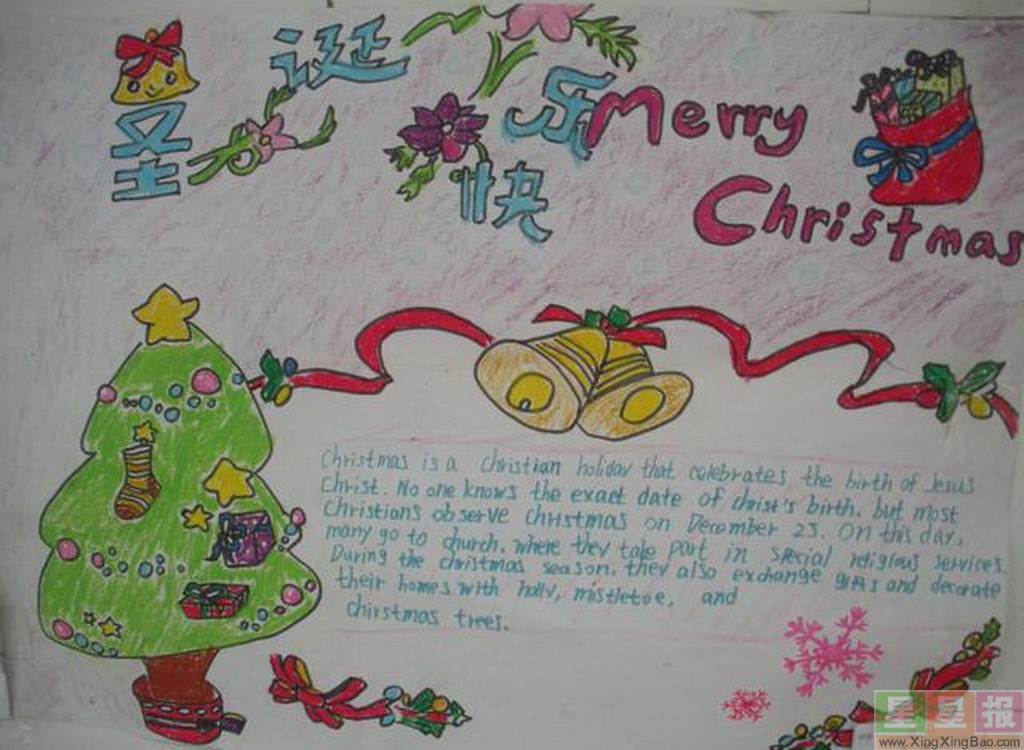 圣诞快乐
Merry
Christmas
Christmas is a christian holiday that celebrates the birth of Jesus
Christ. No one knows the exact date of christ's birth, but most
Christians observe Christmas on December 25. On this day,
many go to church, where they take part in special religious services.
During the christmas season, they also exchange gifts and decorate
their homes with holly, mistletoe, and
chirstmas trees.
星星报
www.XingXingBao.com